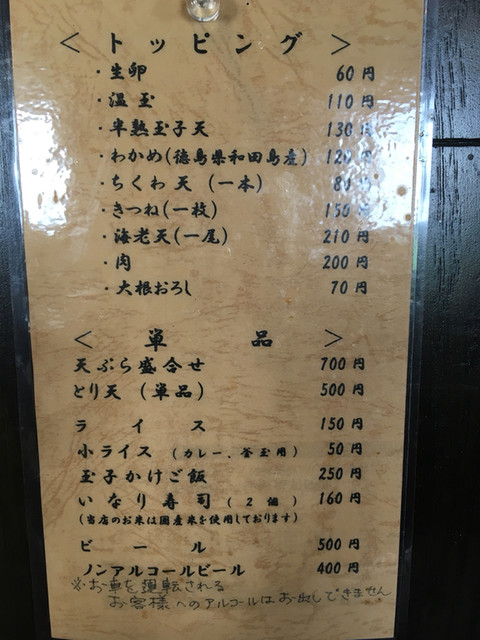 ＜トッピング＞
・生卵 60円
・温玉 110円
・半熟玉子天 130円
・わかめ(徳島県和田島産) 120円
・ちくわ天 (一本) 80円
・きつね(一枚) 150円
・海老天(一尾) 210円
・肉 200円
・大根おろし 70円
＜単品＞
天ぷら盛合せ 700円
とり天 (単品) 500円
ライス 150円
小ライス (カレー、釜玉用) 50円
玉子かけご飯 250円
いなり寿司 (2個) 160円
(当店のお米は国産米を使用しております)
ビール 500円
ノンアルコールビール 400円
※お車を運転される
お客様へのアルコールはお出しできません